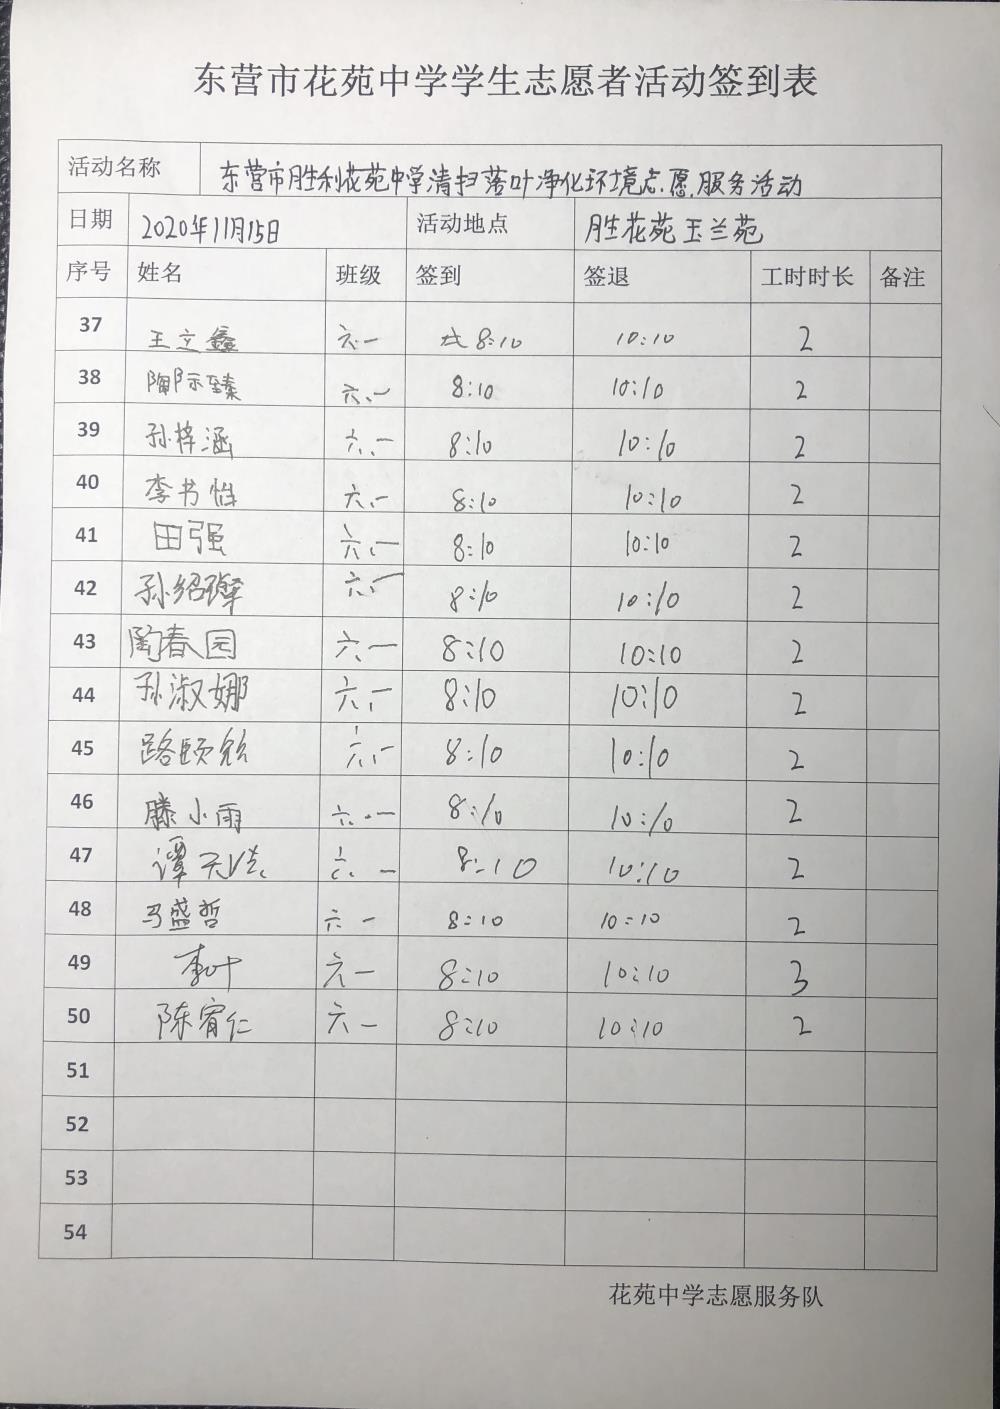 东营市花苑中学学生志愿者活动签到表
活动名称 东营市胜利花苑中学清扫落叶净化环境志愿服务活动
日期 2020年11月15日 活动地点 胜花苑玉兰苑
序号 姓名 班级 签到 签退 工时时长 备注
37 王立鑫 六.一 8:10 10:10 2
38 陶阡臻 六.一 8:10 10:10 2
39 孙梓涵 六.一 8:10 10:10 2
40 李书怡 六.一 8:10 10:10 2
41 田强 六.一 8:10 10:10 2
42 孙绍 六.一 8:10 10:10 2
43 陶春园 六.一 8:10 10:10 2
44 孙淑娜 六.一 8:10 10:10 2
45 路颐 六.一 8:10 10:10 2
46 滕小雨 六.一 8:10 10:10 2
47 谭天 六.一 8:10 10:10 2
48 马盛哲 六一 8:10 10:10 2
49 李叶 六一 8:10 10:10 3
50 陈宥仁 六一 8:10 10:10 2
51
52
53
54
花苑中学志愿服务队